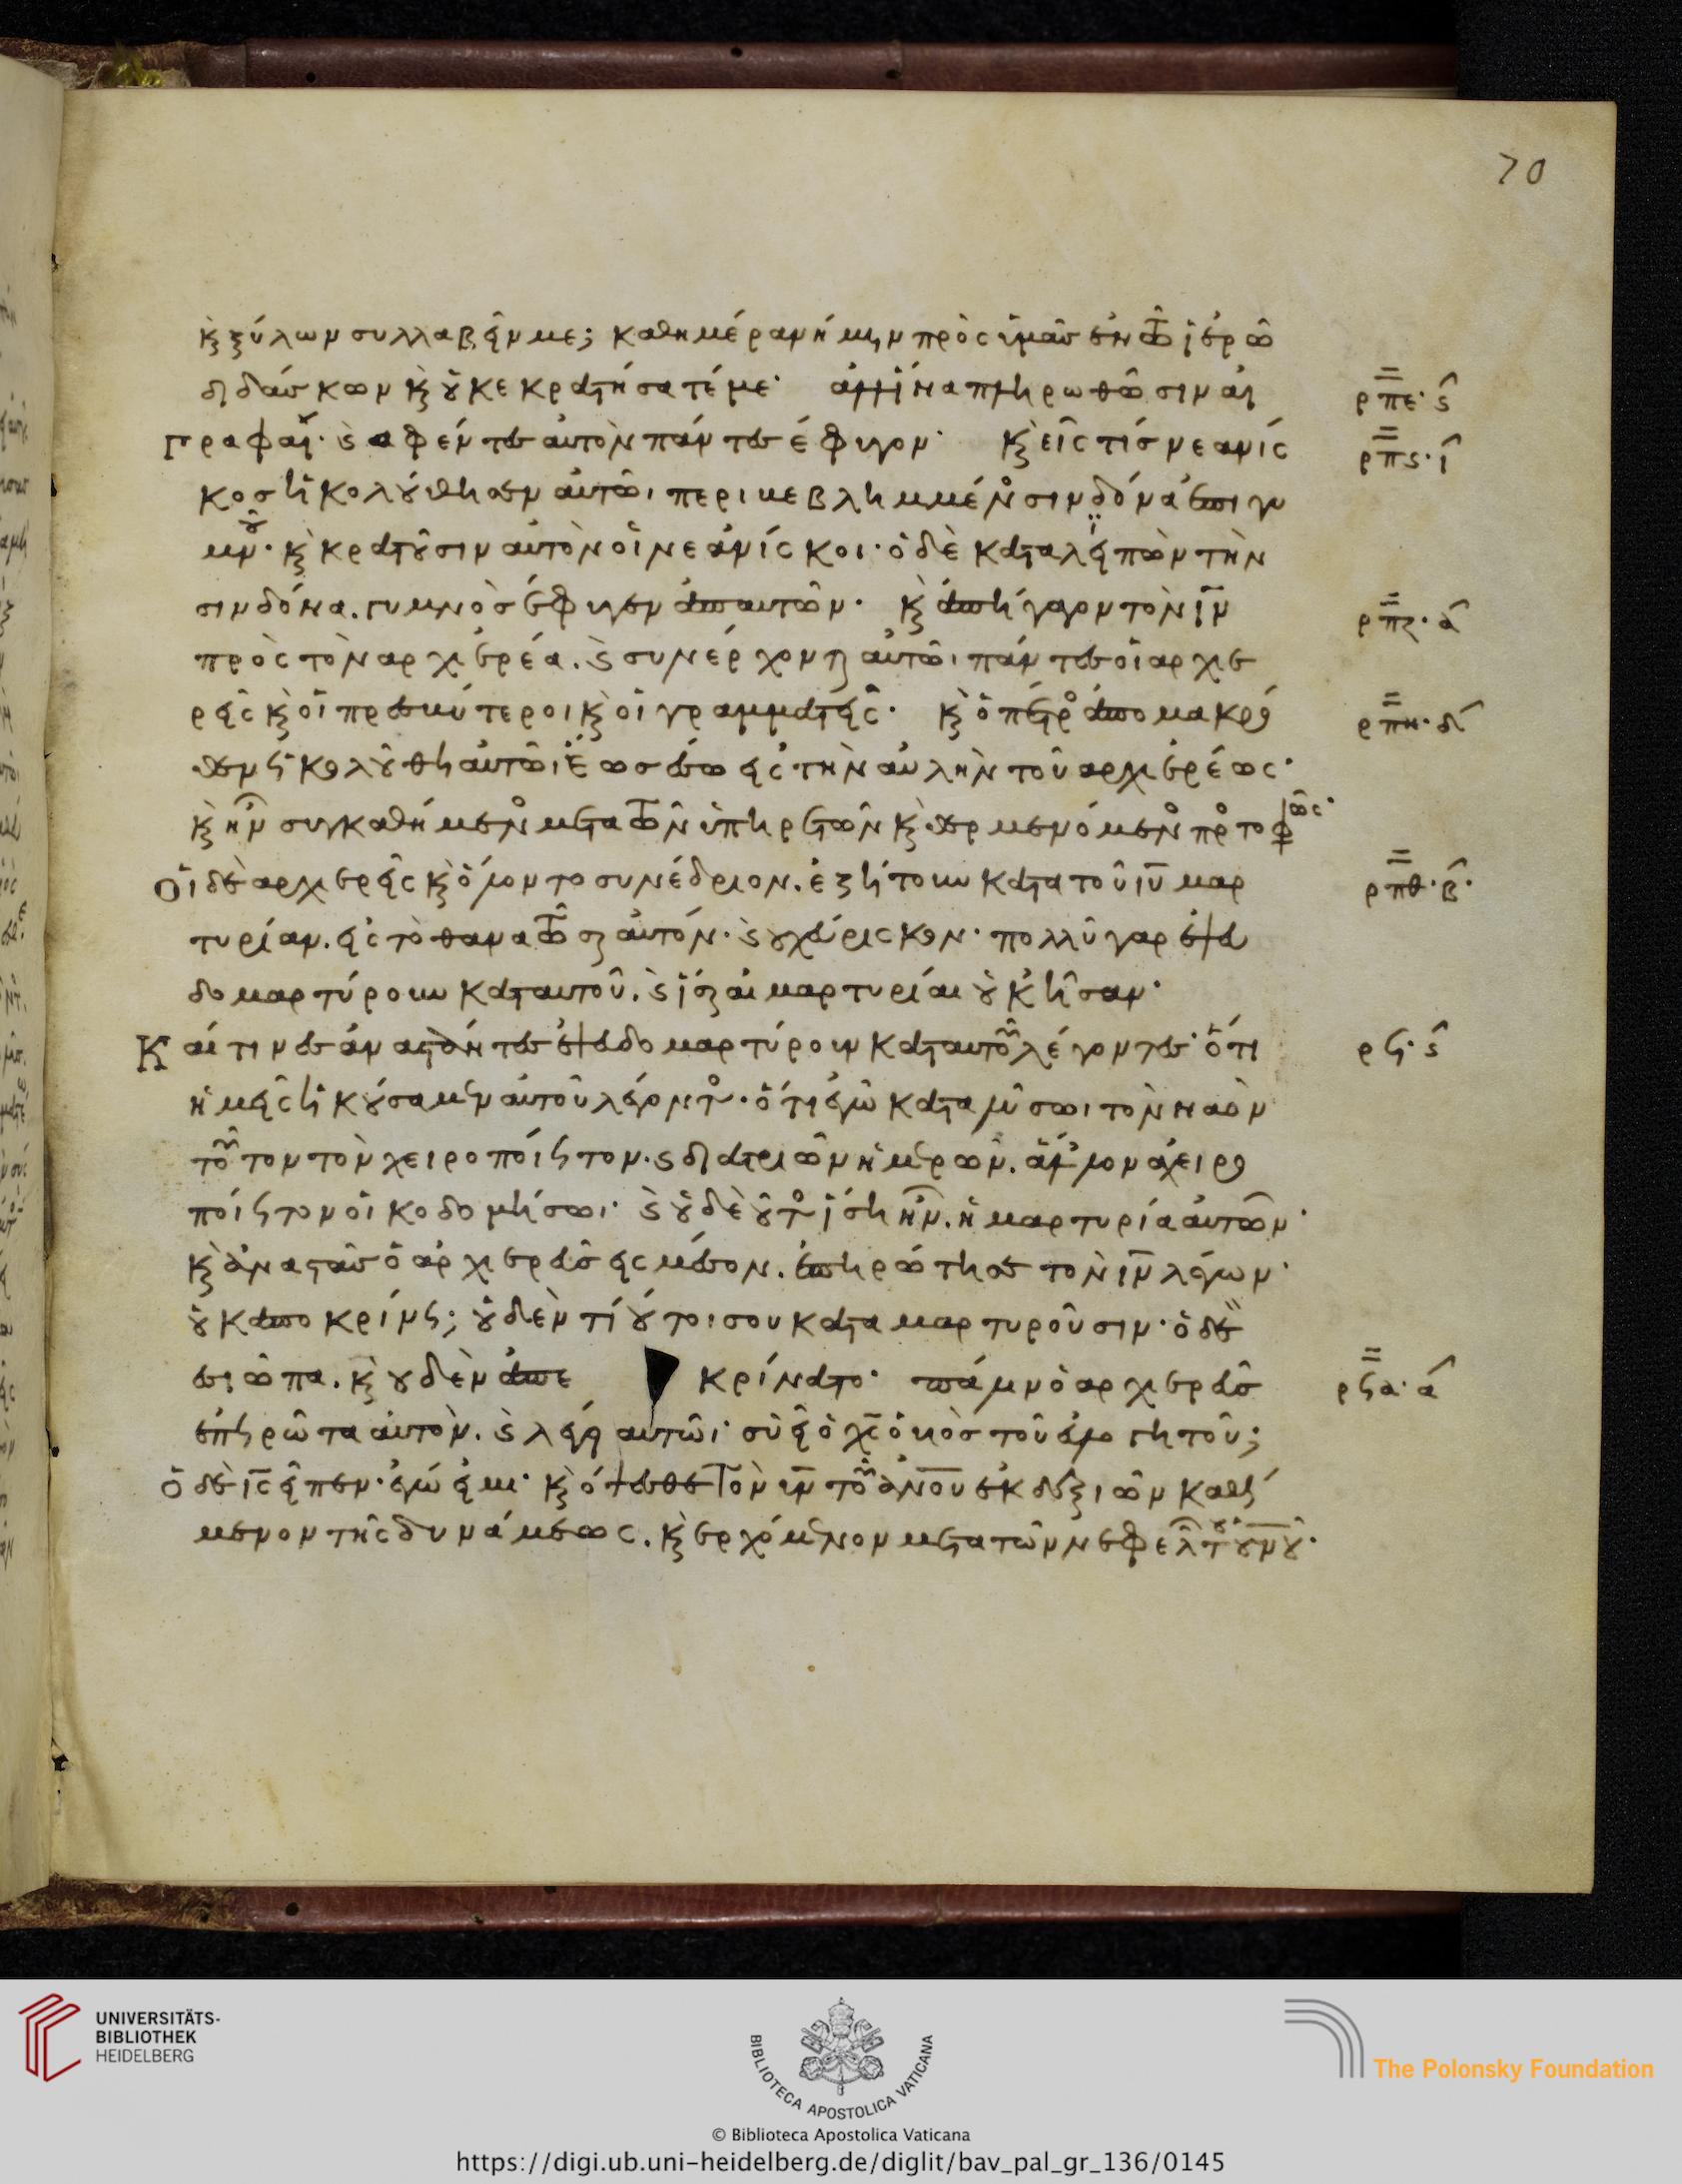 70
κ(αὶ) ξύλων συλλαβεῖν με; καθημέραν ήμην πρὸς ὑμᾶσ ἐν τῶ ἱερῶ
διδάσκων κ(αὶ) οὐκ εκρατήσατέ με· ἀλλ' ἵνα πληρωθῶσιν αἱ
ρπε· ς
γραφαί· κ(αὶ) αφέντεσ αὐτὸν πάντεσ έφυγον· κ(αὶ) εἷς τίσ νεανίς
ρπς· ι
κοσ ἠκολούθησεν αὐτῶ, περιβεβλημμένοσ σινδόνα ἐπι γυ
μνοῦ· κ(αὶ) κρατοῦσιν αὐτὸν οἱ νεανίσκοι· ὁ δὲ καταλειπὼν τὴν
σινδόνα. γυμνὸσ ἔφυγεν ἀπ αυτῶν· κ(αὶ) ἀπήγαγον τὸν ιν
ρπζ· α
πρὸς τὸν αρχιερέα. κ(αὶ) συνέρχονται αὐτῶ, πάντεσ οἱ αρχιε
ρεῖς κ(αὶ) οἱ πρεσβύτεροι κ(αὶ) οἱ γραμματεῖς· κ(αὶ) ὁ πέτροσ ἀπο μακρό
ρπη· δ
θεν ἠκολούθη αὐτῶ, ἕωσ έσω εἰς τὴν αὐλὴν τοῦ αρχιερέως·
κ(αὶ) ἦν συγκαθήμενοσ μετα τῶν ὑπηρετῶν κ(αὶ) θερμενόμενοσ προσ το φῶς·
οἱ δὲ αρχιερεῖς κ(αὶ) ὅλον το συνέδριον. ἐζήτουν κατα τοῦ ιυ μαρ
ρπθ· β·
τυρίαν. εἰς τὸ θανατῶσαι αὐτόν· κ(αὶ) οὐχ εύρισκον· πολλοῖ γαρ ἐψευ
δομαρτύρουν κατ αυτοῦ. κ(αὶ) ἴσαι αἱ μαρτυρίαι οὐκ ἦσαν·
Καί τινεσ ἀναστάντεσ ἐψευδομαρτύρουν κατ αυτοῦ λέγοντεσ· ὅτι
ρϟ· ς
ἡμεῖς ἠκούσαμεν αὐτοῦ λέγοντοσ· ὅτι ἐγὼ καταλύσω, τὸν ναὸν
τοῦτον τὸν χειροποίητον· κ(αὶ) δια τριῶν ἡμερῶν. ἄλλον ἀχειρο
ποίητον οἰκοδομήσω, κ(αὶ) οὐδὲ οὕτωσ ἴση ἦν. ἡ μαρτυρία αὐτῶν·
κ(αὶ) ἀναστὰσ ὁ ἀρχιερεῦσ εἰς μέσον. ἐπηρώτησε τὸν ιν λέγων·
οὐκ ἀποκρίνη; οὐδὲν τί οὗτοι σου καταμαρτυροῦσιν· ὁ δὲ
ἐσιώπα. κ(αὶ) οὐδὲν ἀπε κρίνατο· πάλιν ὁ αρχιερεῦσ
ρϟα· α
ἐπηρῶτα αὐτὸν. κ(αὶ) λέγει αυτῶ, σὺ εἶ ὁ χς ὁ υἱὸσ τοῦ εὐλογητοῦ;
ὁ δὲ ις εἶπεν· ἐγώ εἰμι· κ(αὶ) όψεσθε τὸν υν τοῦ ἀνου ἐκ δεξιῶν καθή
μενον τῆς δυνάμεως. κ(αὶ) ερχόμενον μετα τῶν νεφελῶν τοῦ ουνου·
UNIVERSITÄTS-
BIBLIOTHEK
HEIDELBERG
BIBLIOTECA APOSTOLICA VATICANA
The Polonsky Foundation
© Biblioteca Apostolica Vaticana
https://digi.ub.uni-heidelberg.de/diglit/bav_pal_gr_136/0145